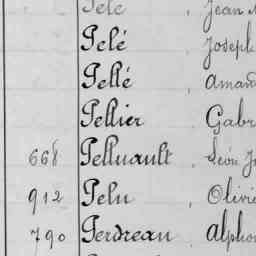 Pelé Jean
Pelé Joseph
Pellé Amand
Pellier Gabr
668 Pelluault Léon J
912 Pelu Olivi
790 Perdreau Alpho